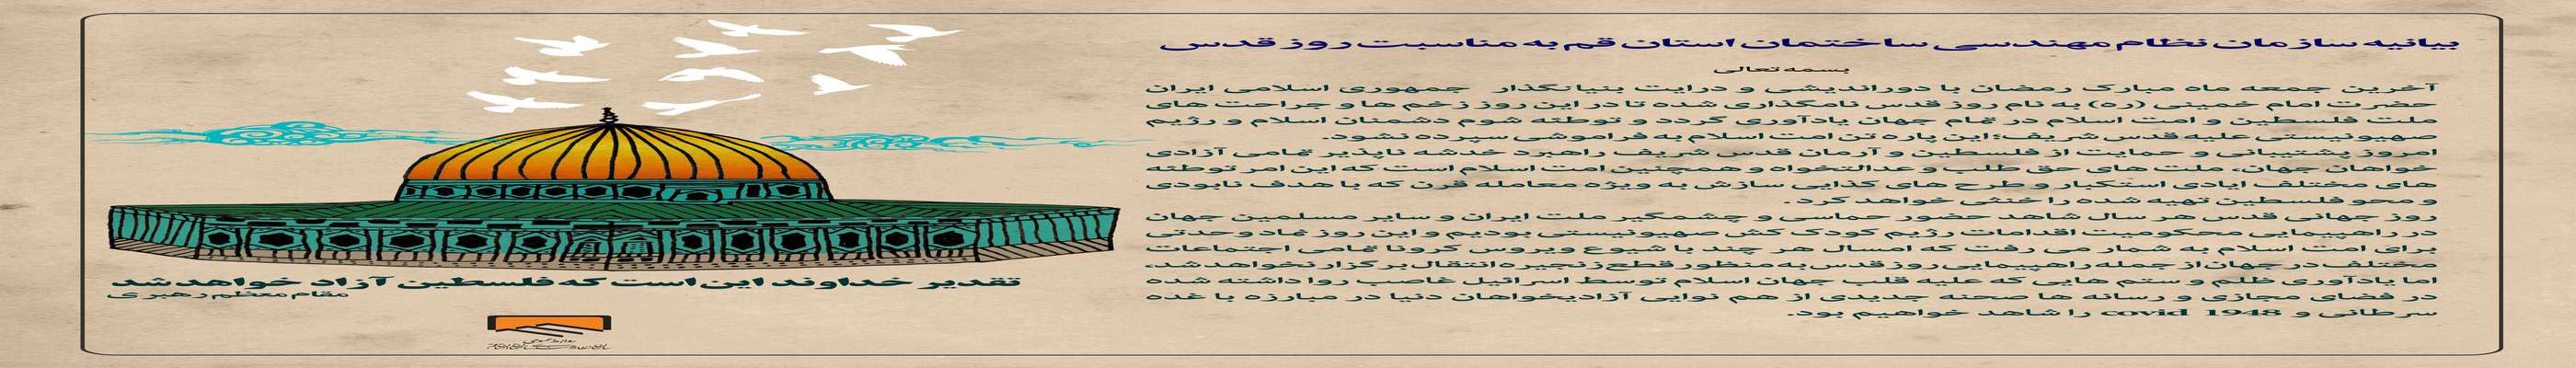 بیانیه سازمان نظام مهندسی ساختمان استان قم به مناسبت روز قدس
بسمه تعالی
آخرین جمعه ماه مبارک رمضان با دوراندیشی و درایت بنیانگذار جمهوری اسلامی ایران
حضرت امام خمینی (ره) به نام روز قدس نامگذاری شده تا در این روز زخم ها و جراحت های
ملت فلسطین و امت اسلام در تمام جهان یادآوری گردد و توطئه شوم دشمنان اسلام و رژیم
صهیونیستی علیه قدس شریف؛این پاره تن امت اسلام به فراموشی سپرده نشود.
امروز پشتیبانی و حمایت از فلسطین و آرمان قدس شریف راهبرد خدشه ناپذیر تمامی آزادی
خواهان جهان، ملت های حق طلب و عدالتخواه و همچنین امت اسلام است که این امر توطئه
های مختلف ایادی استکبار و طرح های کذایی سازش به ویژه معامله قرن که با هدف نابودی
و محو فلسطین تهیه شده را خنثی خواهد کرد.
روز جهانی قدس هر سال شاهد حضور حماسی و چشمگیر ملت ایران و سایر مسلمین جهان
در راهپیمایی محکومیت اقدامات رژیم کودک کش صهیونیستی بودیم و این روز نماد وحدتی
برای امت اسلام به شمار می رفت که امسال هر چند با شیوع ویروس کرونا تمامی اجتماعات
مختلف در جهان از جمله راهپیمایی روز قدس به منظور قطع زنجیره انتقال برگزار نخواهد شد،
اما یادآوری ظلم و ستم هایی که علیه قلب جهان اسلام توسط اسرائیل غاصب روا داشته شده
در فضای مجازی و رسانه ها صحنه جدیدی از هم نوایی آزادیخواهان دنیا در مبارزه با غده
سرطانی و covid 1948 را شاهد خواهیم بود.
تقدیر خداوند این است که فلسطین آزاد خواهد شد
مقام معظم رهبری